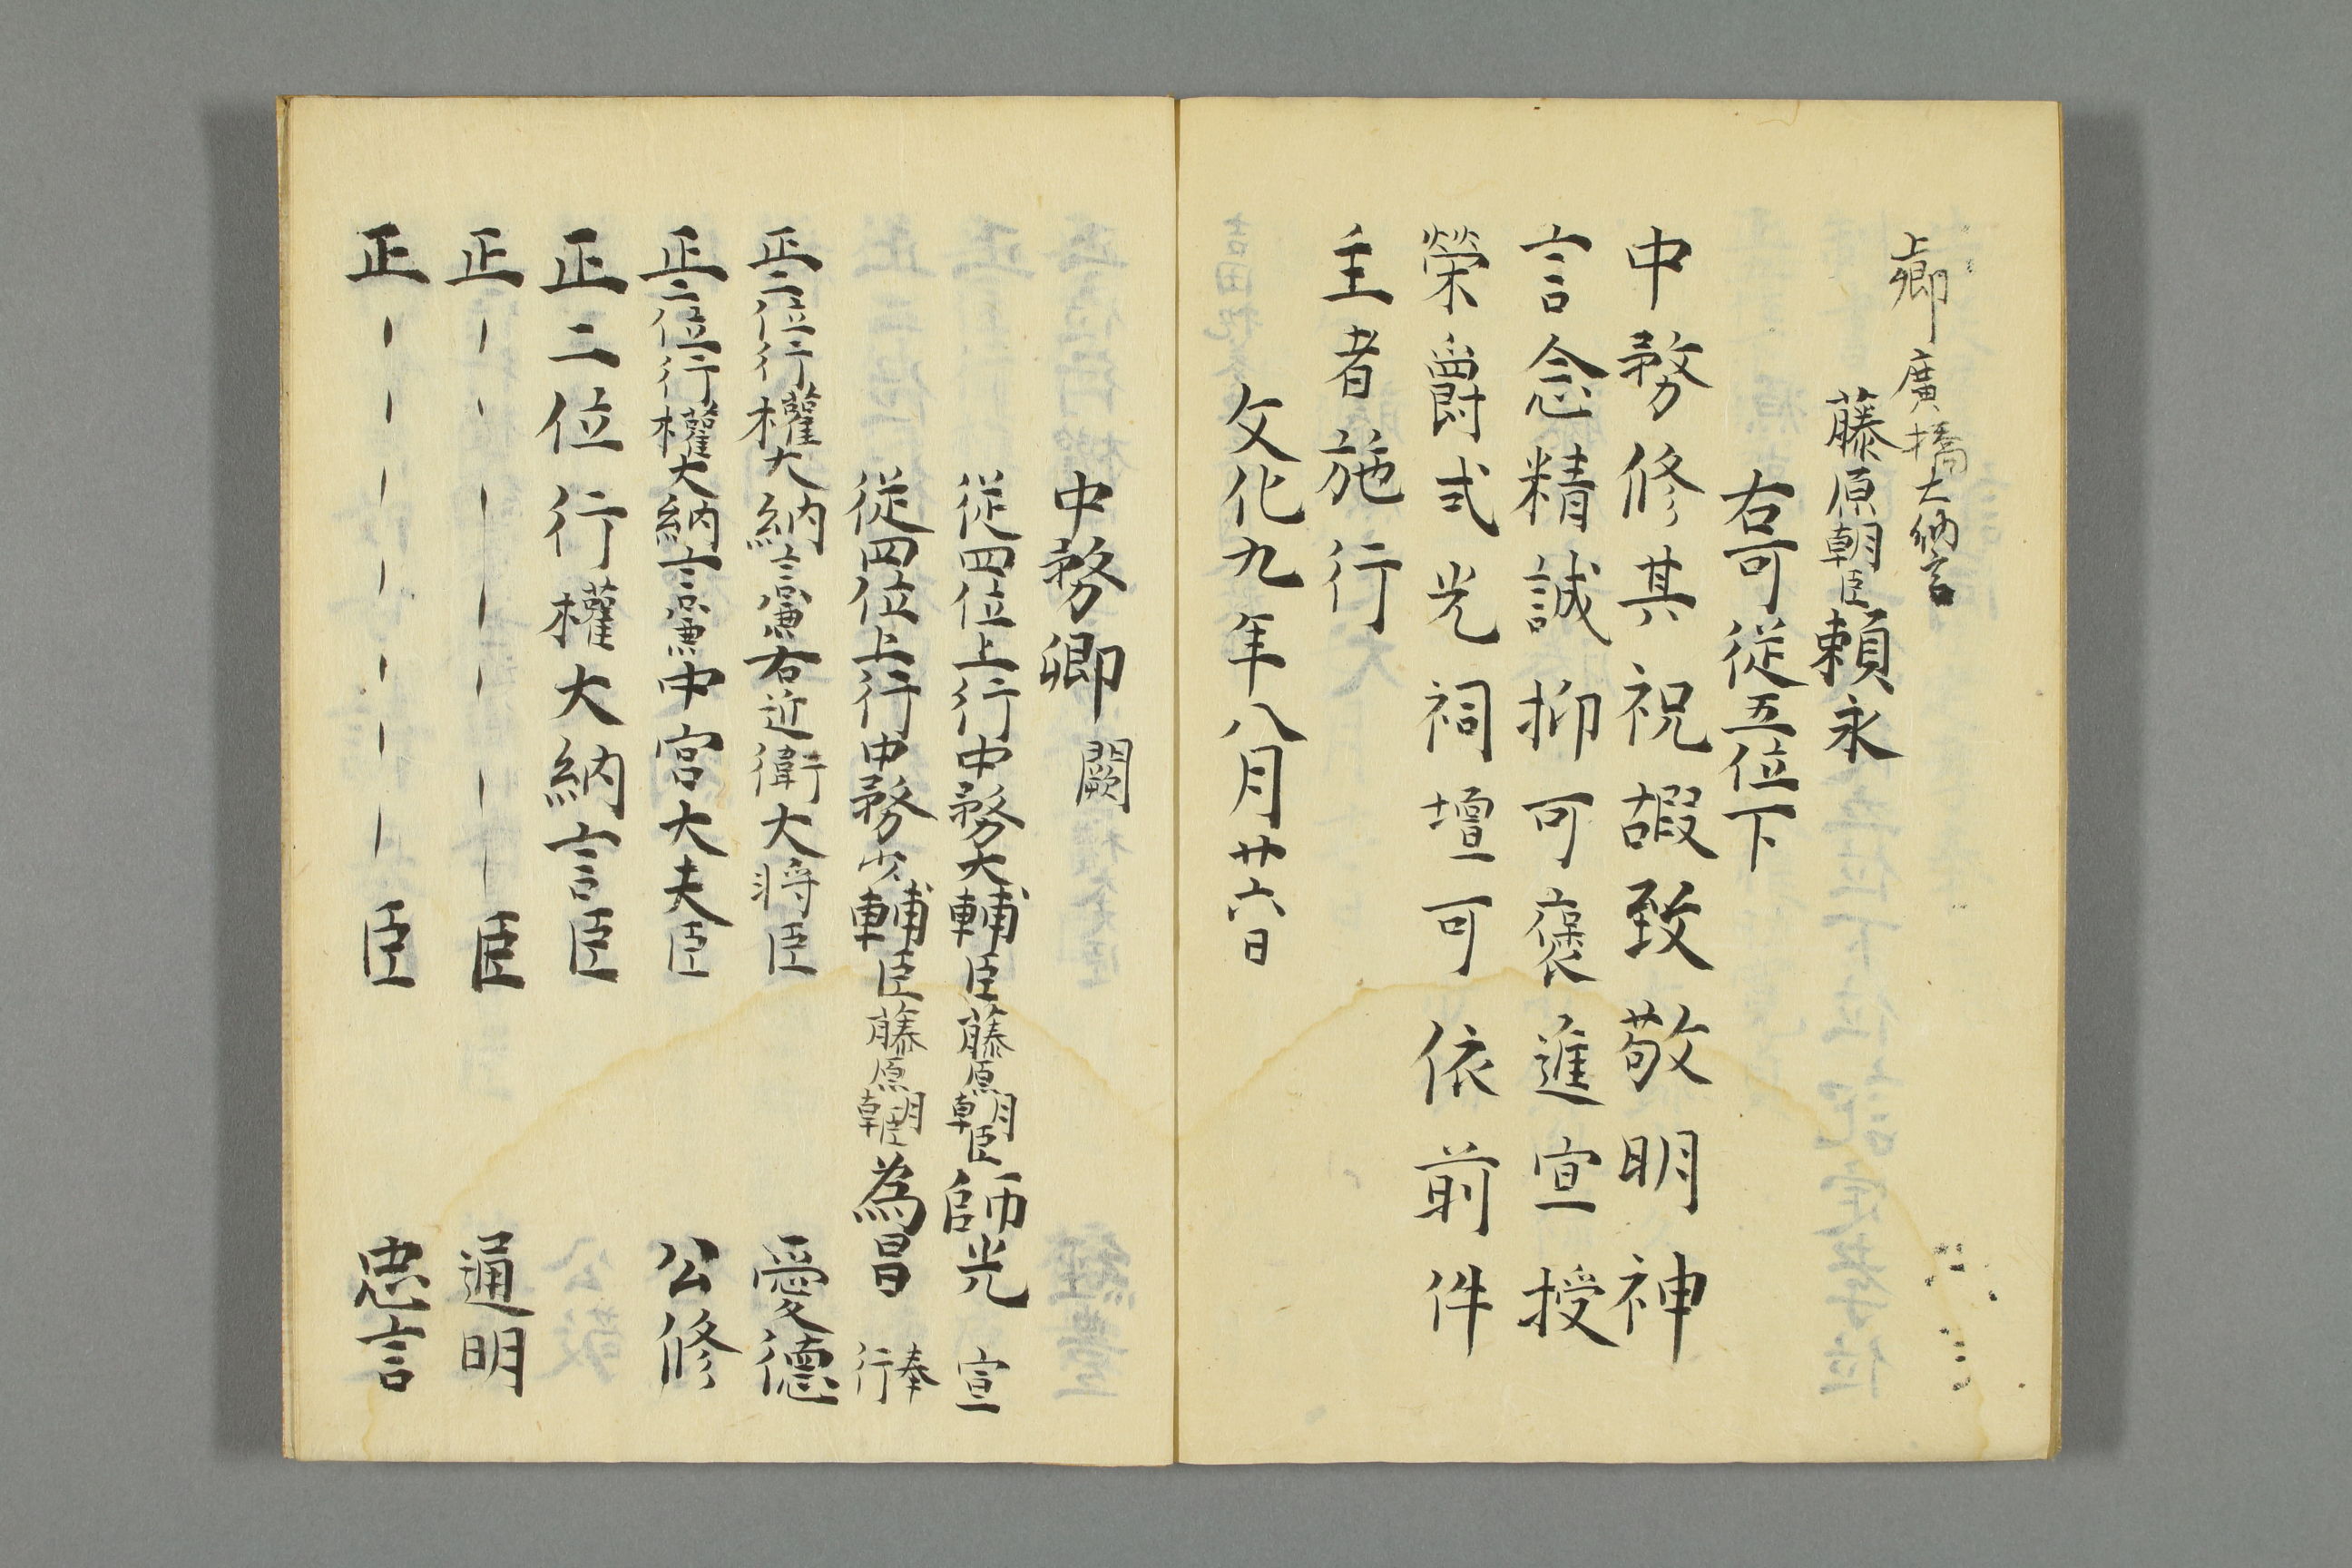 上卿 廣橋大納言
藤原朝臣賴永
右可従五位下
中務修其祝嘏致敬明神
言念精誠抑可褒進宣授
榮爵式光祠壇可依前件
主者施行
文化九年八月廿六日
中務卿 闕
従四位上行中務大輔臣藤原朝臣師光 宣
従四位上行中務少輔臣藤原朝臣為昌 奉行
正二位行權大納言兼右近衛大将臣 愛德
正二位行權大納言兼中宮大夫臣 公修
正二位行權大納言臣
正 臣 通明
正 臣 忠言